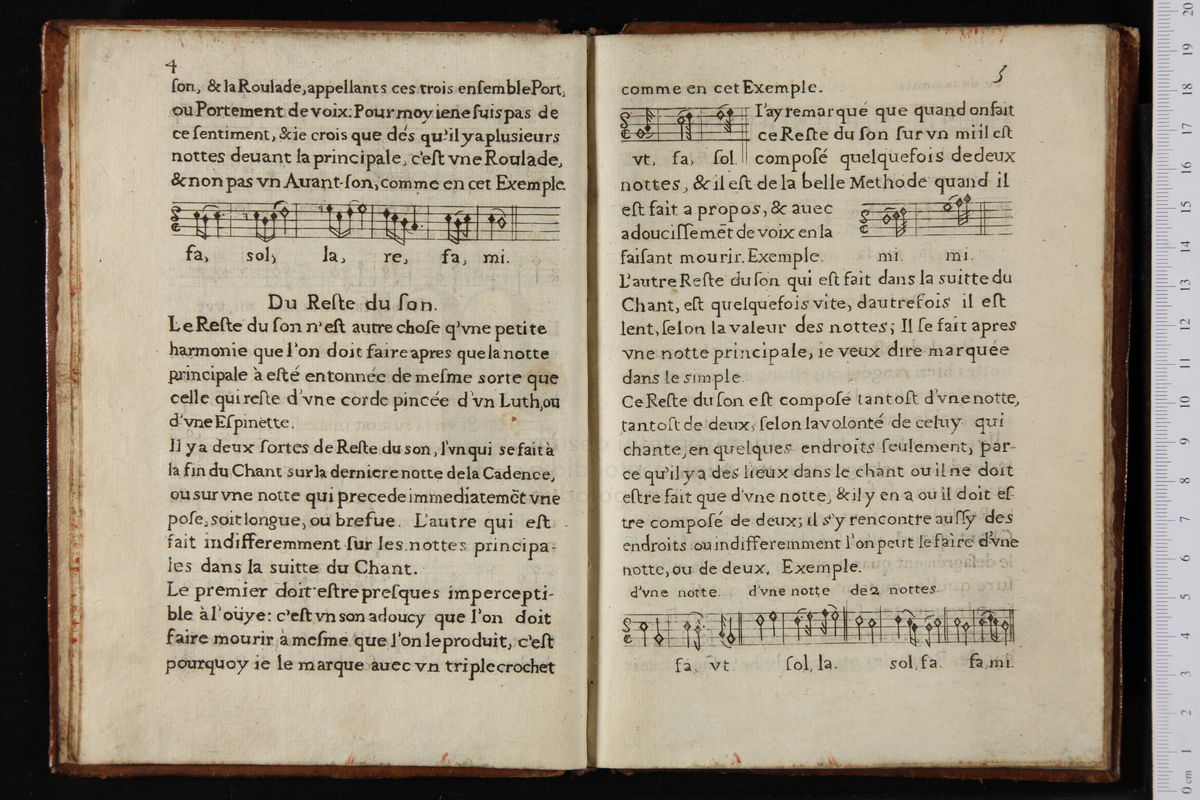 4
ſon, & la Roulade, appellants ces trois enſemble Port,
ou Portement de voix: Pour moy ie ne ſuis pas de
ce ſentiment, & ie crois que dés qu'il y a plusieurs
nottes deuant la principale, c'eſt vne Roulade,
& non pas vn Auant-ſon, comme en cet Exemple.
fa, sol, la, re, fa, mi.
Du Reſte du ſon.
Le Reſte du ſon n'eſt autre choſe q'vne petite
harmonie que l'on doit faire apres que la notte
principale à eſté entonnée de meſme sorte que
celle qui reſte d'vne corde pincée d'vn Luth, ou
d'vne Eſpinette.
Il y a deux ſortes de Reſte du son, l'vn qui se fait à
la fin du Chant sur la derniere notte de la Cadence,
ou sur vne notte qui precede immediatemēt vne
poſe, soit longue, ou brefue. L'autre qui eſt
fait indifferemment ſur les nottes principa-
les dans la suitte du Chant.
Le premier doit eſtre presques impercepti-
ble à l'oüye: c'eſt vn son adoucy que l'on doit
faire mourir à meſme que l'on le produit, c'eſt
pourquoy ie le marque auec vn triple crochet
5
comme en cet Exemple.
vt, fa, ſol.
I'ay remarqué que quand on fait
ce Reſte du ſon ſur vn mi il eſt
compoſé quelquefois de deux
nottes, & il eſt de la belle Methode quand il
eſt fait a propos, & auec
adouciſſemēt de voix en la
faiſant mourir. Exemple.
mi. mi.
L'autre Reſte du ſon qui eſt fait dans la suitte du
Chant, eſt quelquefois vite, dautrefois il eſt
lent, ſelon la valeur des nottes; Il ſe fait apres
vne notte principale, ie veux dire marquée
dans le simple.
Ce Reſte du ſon eſt compoſé tantoſt d'vne notte,
tantoſt de deux, ſelon la volonté de celuy qui
chante, en quelques endroits ſeulement, par-
ce qu'il y a des lieux dans le chant ou il ne doit
eſtre fait que d'vne notte, & il y en a ou il doit eſ-
tre compoſé de deux; il s'y rencontre auſſy des
endroits ou indifferemment l'on peut le faire d'vne
notte, ou de deux. Exemple.
d'vne notte. d'vne notte de 2 nottes.
fa, vt. ſol, la. sol, fa. fa, mi.